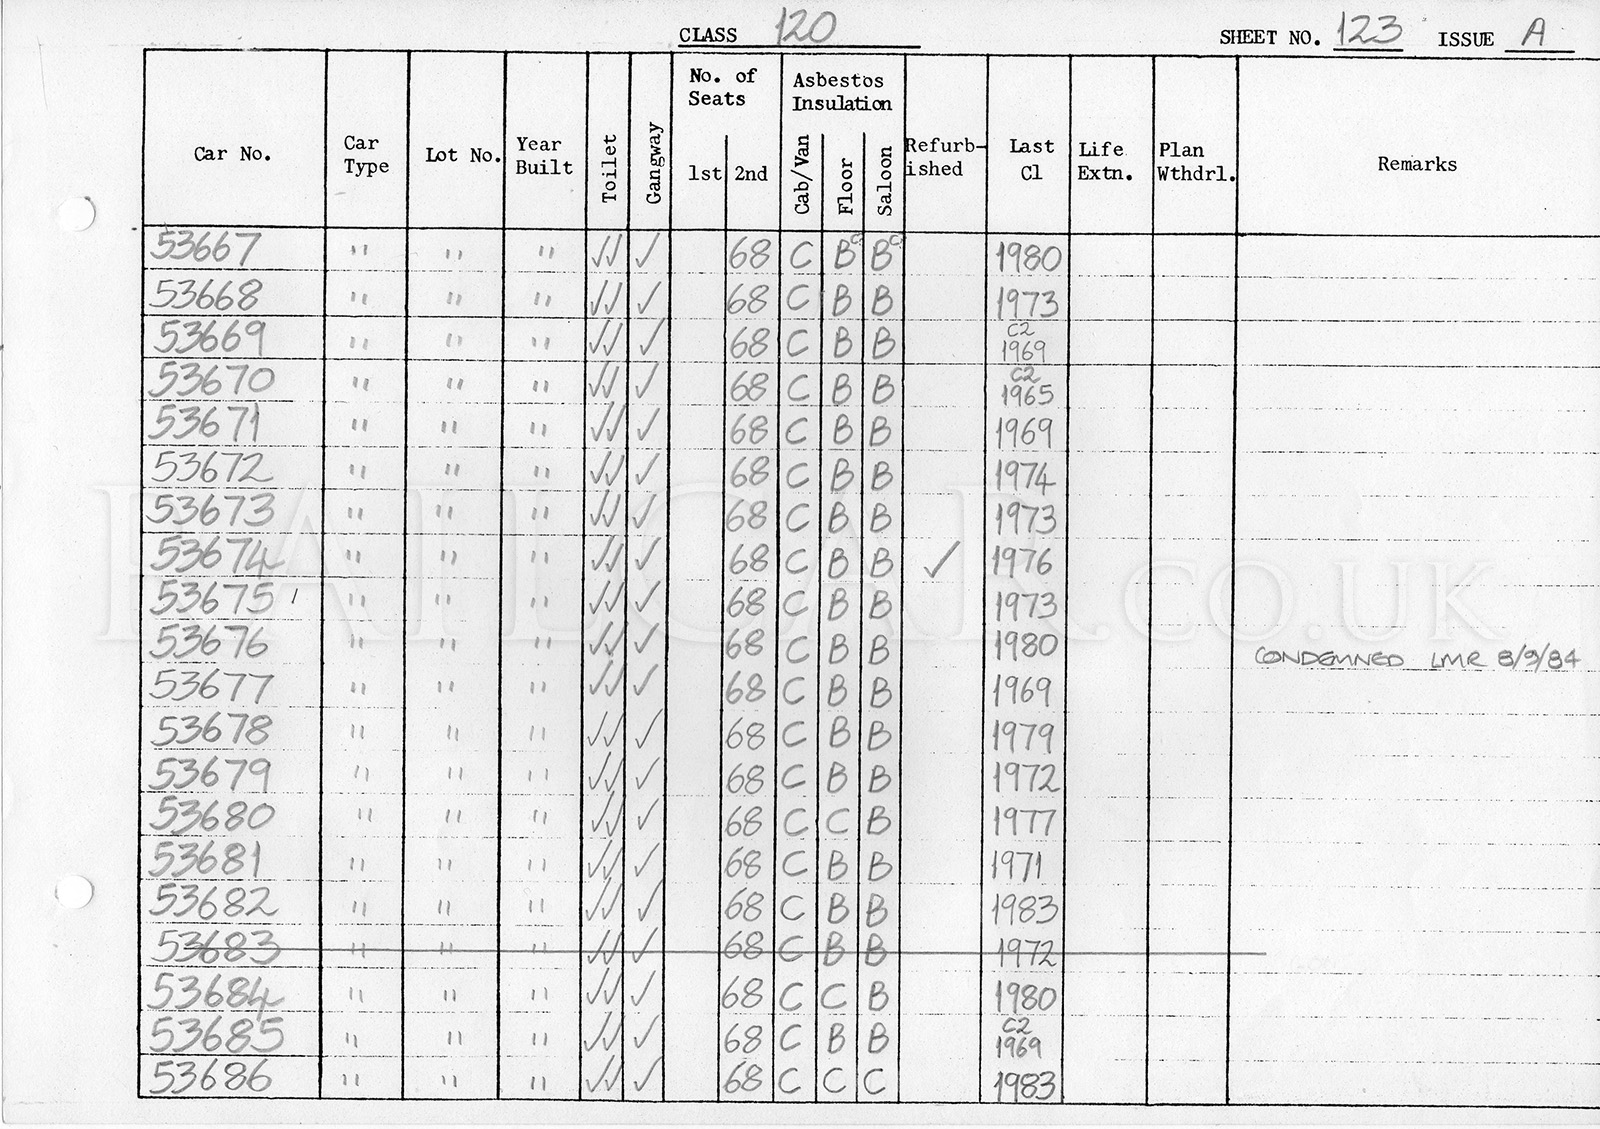 CLASS 120 SHEET NO. 123 ISSUE A
Car No. Car Type Lot No. Year Built Toilet Gangway No. of Seats 1st 2nd Asbestos Insulation Cab/Van Floor Saloon Refurb-ished Last Cl Life Extn. Plan Wthdrl. Remarks
53667 " " " ✓✓ ✓ 68 C B C B C 1980
53668 " " " ✓✓ ✓ 68 C B B 1973
53669 " " " ✓✓ ✓ 68 C B B C2 1969
53670 " " " ✓✓ ✓ 68 C B B C2 1965
53671 " " " ✓✓ ✓ 68 C B B 1969
53672 " " " ✓✓ ✓ 68 C B B 1974
53673 " " " ✓✓ ✓ 68 C B B 1973
53674 " " " ✓✓ ✓ 68 C B B ✓ 1976
53675 / " " " ✓✓ ✓ 68 C B B 1973
53676 " " " ✓✓ ✓ 68 C B B 1980 CONDEMNED LMR 8/9/84
53677 " " " ✓✓ ✓ 68 C B B 1969
53678 " " " ✓✓ ✓ 68 C B B 1979
53679 " " " ✓✓ ✓ 68 C B B 1972
53680 " " " ✓✓ ✓ 68 C C B 1977
53681 " " " ✓✓ ✓ 68 C B B 1971
53682 " " " ✓✓ ✓ 68 C B B 1983
53683 " " " ✓✓ ✓ 68 C B B 1972
53684 " " " ✓✓ ✓ 68 C C B 1980
53685 " " " ✓✓ ✓ 68 C B B C2 1969
53686 " " " ✓✓ ✓ 68 C C C 1983
RAILCAR.CO.UK